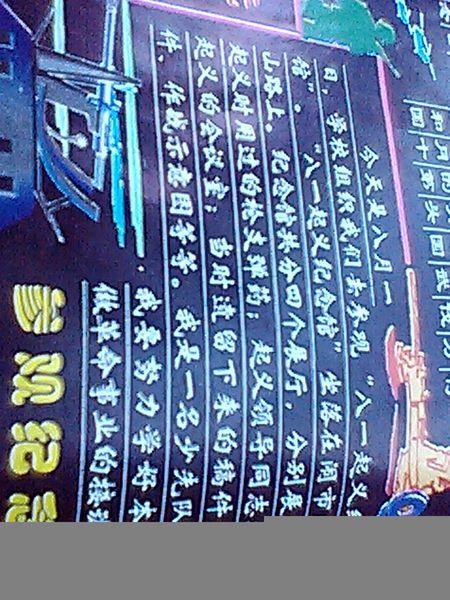 今天是八月一
日，学校组织我们去参观“八一起义
馆”。“八一起义纪念馆”坐落在闹市
山路上。纪念馆共分四个展厅，分别是
起义时用过的枪支弹药；起义领导同志
起义的会议室；当时遗留下来的稿件
件、作战示意图等等。我是一名少先队
我要努力学好本
做革命事业的接班
参观纪念